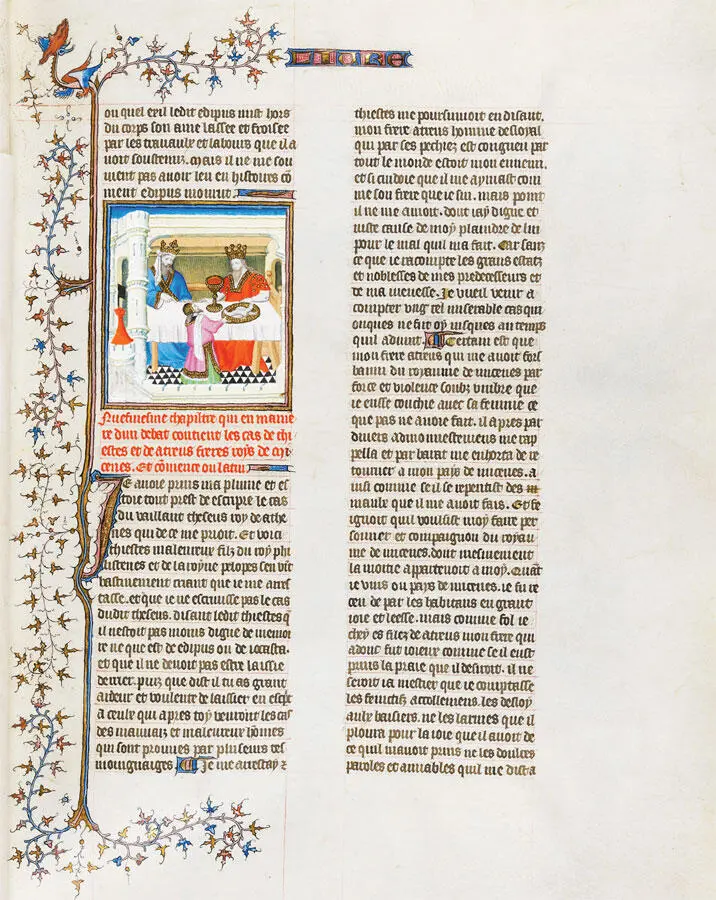 ou quel exil ledit edipus mist hors
du corps son ame lassee et froissee
par les travaulx et labours que il a
voit soustenuz. Mais il ne me sou
vient pas avoir leu en histoires co
ment edipus mourut.
Neufiesme chapiltre qui en manie
re dun debat contient les cas de thi
estes et de atreus freres roys de
cenes. Et comence ou latin
Je avoie prins ma plume et es
toie tout prest de escripre le cas
du vaillant theseus roy de athe
nes qui de ce me prioit. Et voici
thiestes maleureux filz du roy phi
listenes et de la royne pelopes son
hastivement criant que je me arres
tasse. et que je ne escrivisse pas le cas
dudit theseus. disant ledit thiestes q
il nestoit pas moins digne de memoi
re ne que est de edipus ou de iocasta.
et que il ne devoit pas estre laissie
derrier. puiz que dist il tu as grant
ardeur et voulente de laissier en escpt
a ceulx qui apres toy vendront les cas
des mauvaiz et maleureux homes
qui sont prouvez par plusieurs tes
moingnaiges. Je me arrestay z
thiestes me poursuivoit en disant.
mon frere atreus homme desloyal
qui par ses pechiez est congneu par
tout le monde estoit mon ennemi.
et si cuidoie que il me aymast com
me son frere que je sui. mais point
il ne me aimoit. dont iay digne et
iuste cause de moy plaindre de lui
pour le mal quil ma fait. Car sanz
ce que je racompte les grans estatz
et noblesses de mes predecesseurs et
de ma iuenesse. Je vueil venir a
compter ung tel miserable cas qui
onques ne fut oy iusques au temps
quil advint. Certain est que
mon frere atreus qui me avoit for
banni du royaume de micenes par
force et violence soubz umbre que
ie eusse couchie avec sa femme ce
que pas ne avoie fait. il apres par
divers admonnestemens me rap
pella et par barat me enhorta de re
tourner a mon pays de micenes. a
insi comme se il se repentist des
maulx que il me avoit fais. Et fe
ignoit quil voulsist moy faire per
sonnier et compaignon du royau
me de micenes. dont mesmement
la moitie appartenoit a moy. Quat
ie vins ou pays de micenes. ie fu re
ceu de par les habitans en grant
ioie et leesse. mais comme fol ie
chey es filez de atreus mon frere qui
adonc fut ioieux comme se il eust
prins la praie que il desiroit. il ne
seroit ia mestier que ie comptasse
les faintifz accollemens. les desloy
aulx baisiers. ne les larmes que il
ploura pour la ioie que il avoit de
ce quil mavoit prins ne les doulces
paroles et amiables quil me dist a